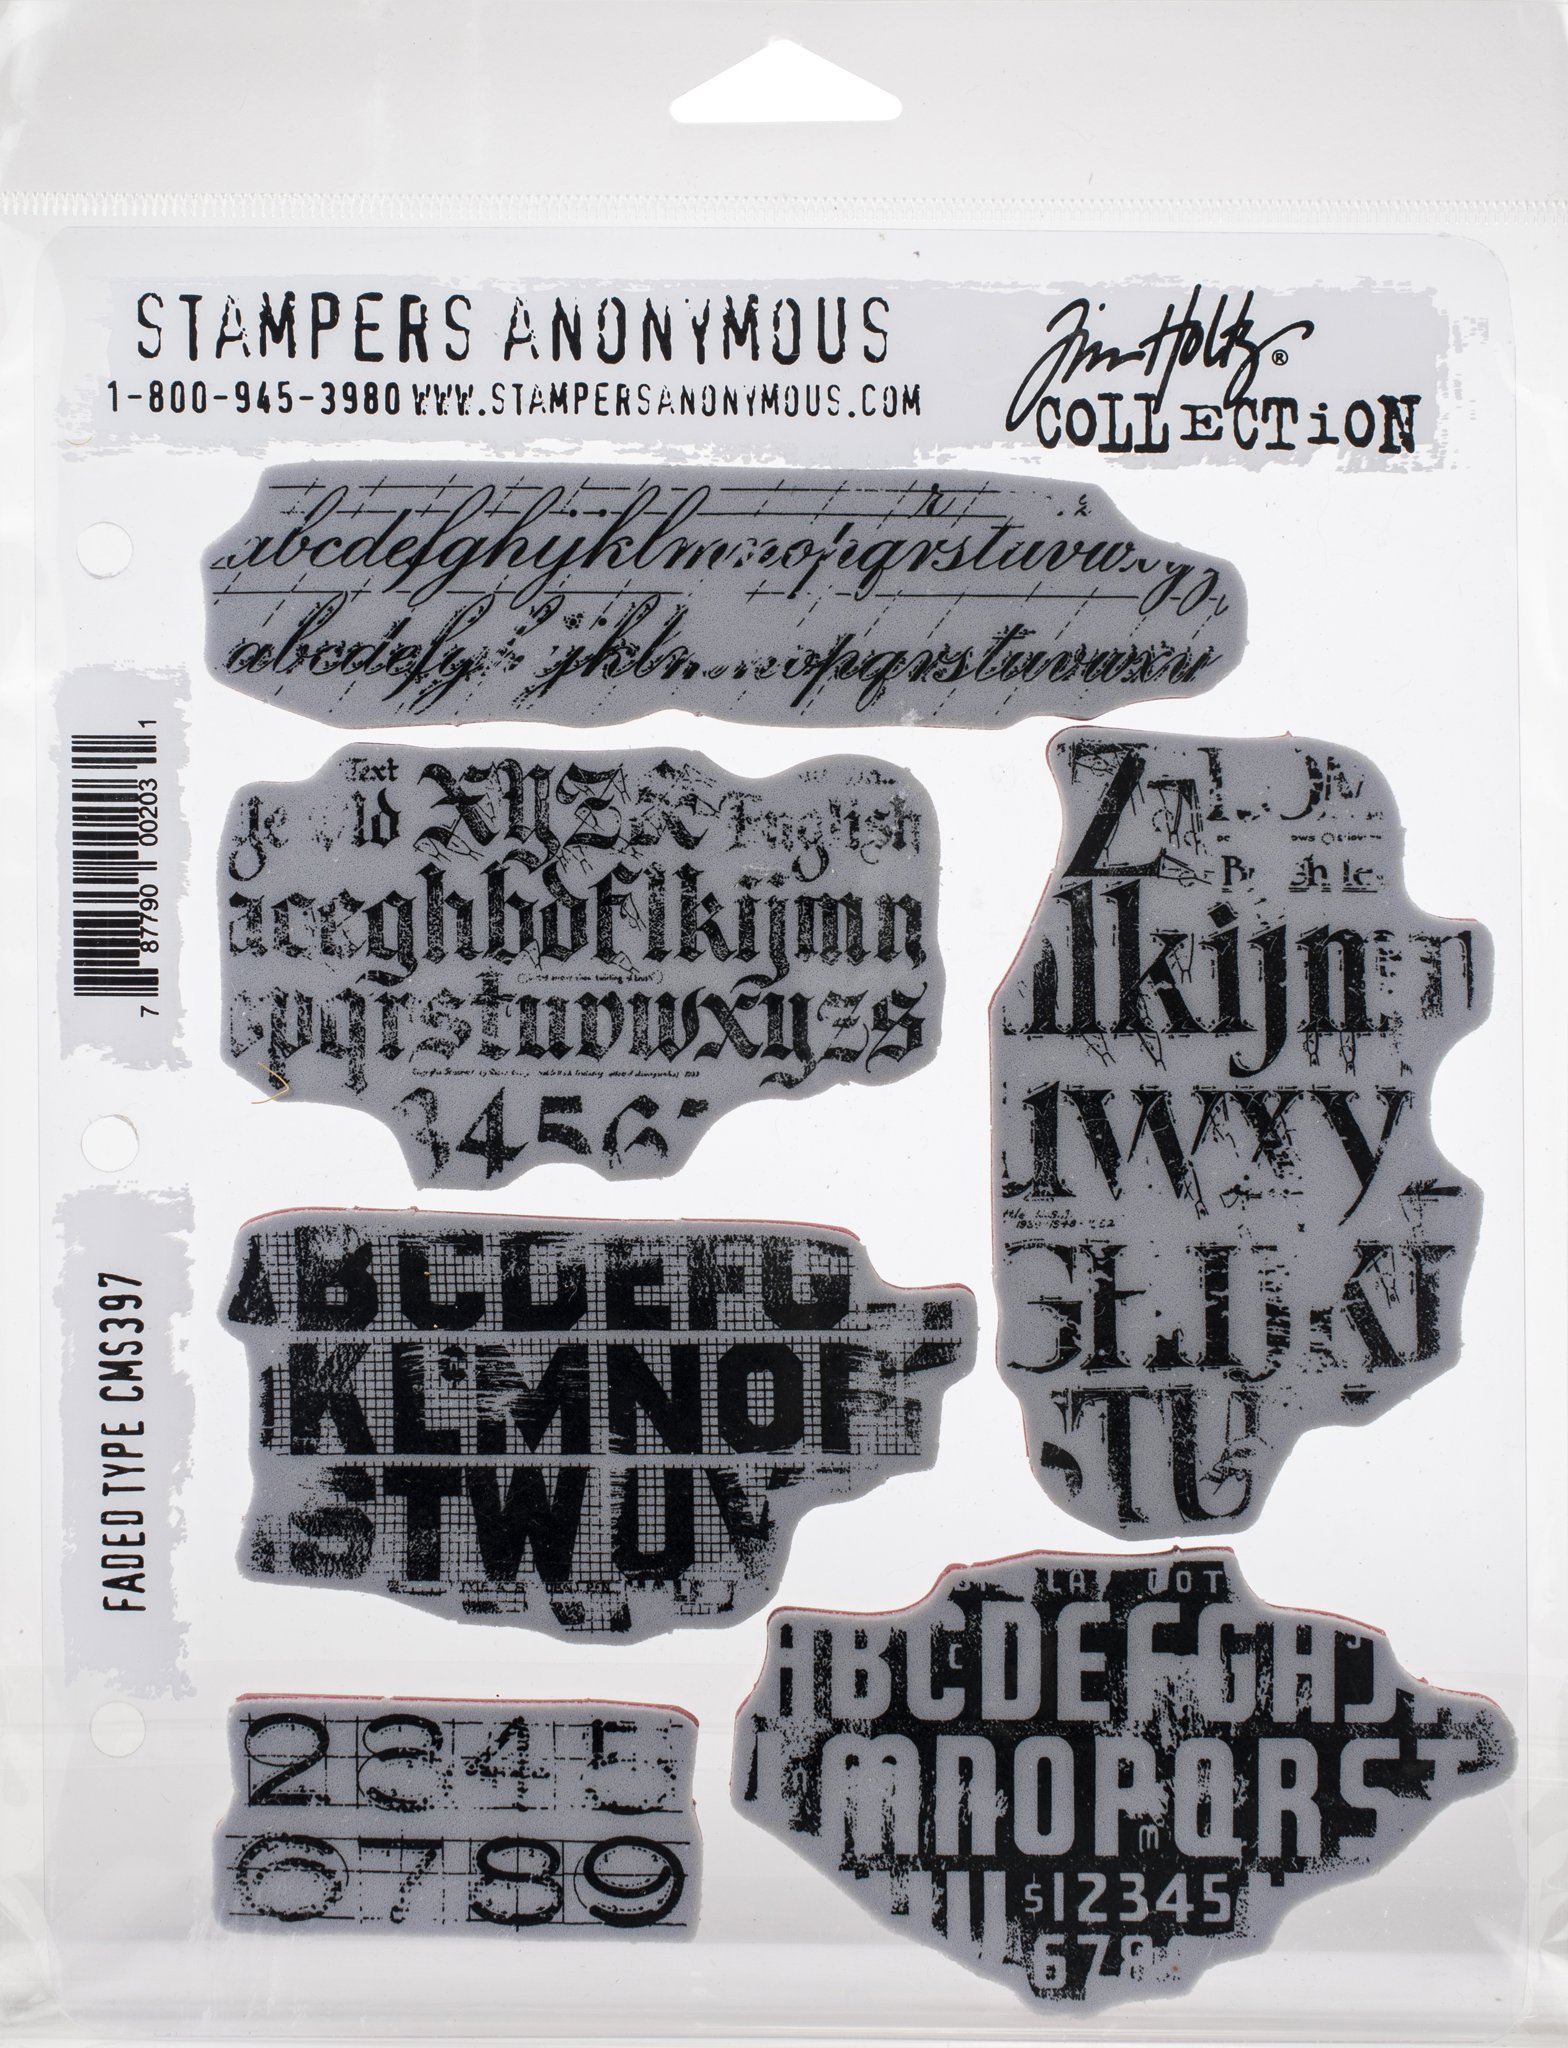 STAMPERS ANONYMOUS
1-800-945-3980 WWW.STAMPERSANONYMOUS.COM
Tim Holtz®
COLLECTiON
7 87790 00203 1
FADED TYPE CMS397
abcdefghijklmnopqrstuvwxyz
abcdefg jklm opqrstuvwxy
Text
XYZ& English
aceghbdflkijmn
pqrstuvwxyzs
3456
Z
lkijn
wxy
GHIJK
STU
ABCDEFG
KLMNOP
STWUV
2345
6789
LA
ABCDEFGHJ
MNOPQRST
m
$12345
678